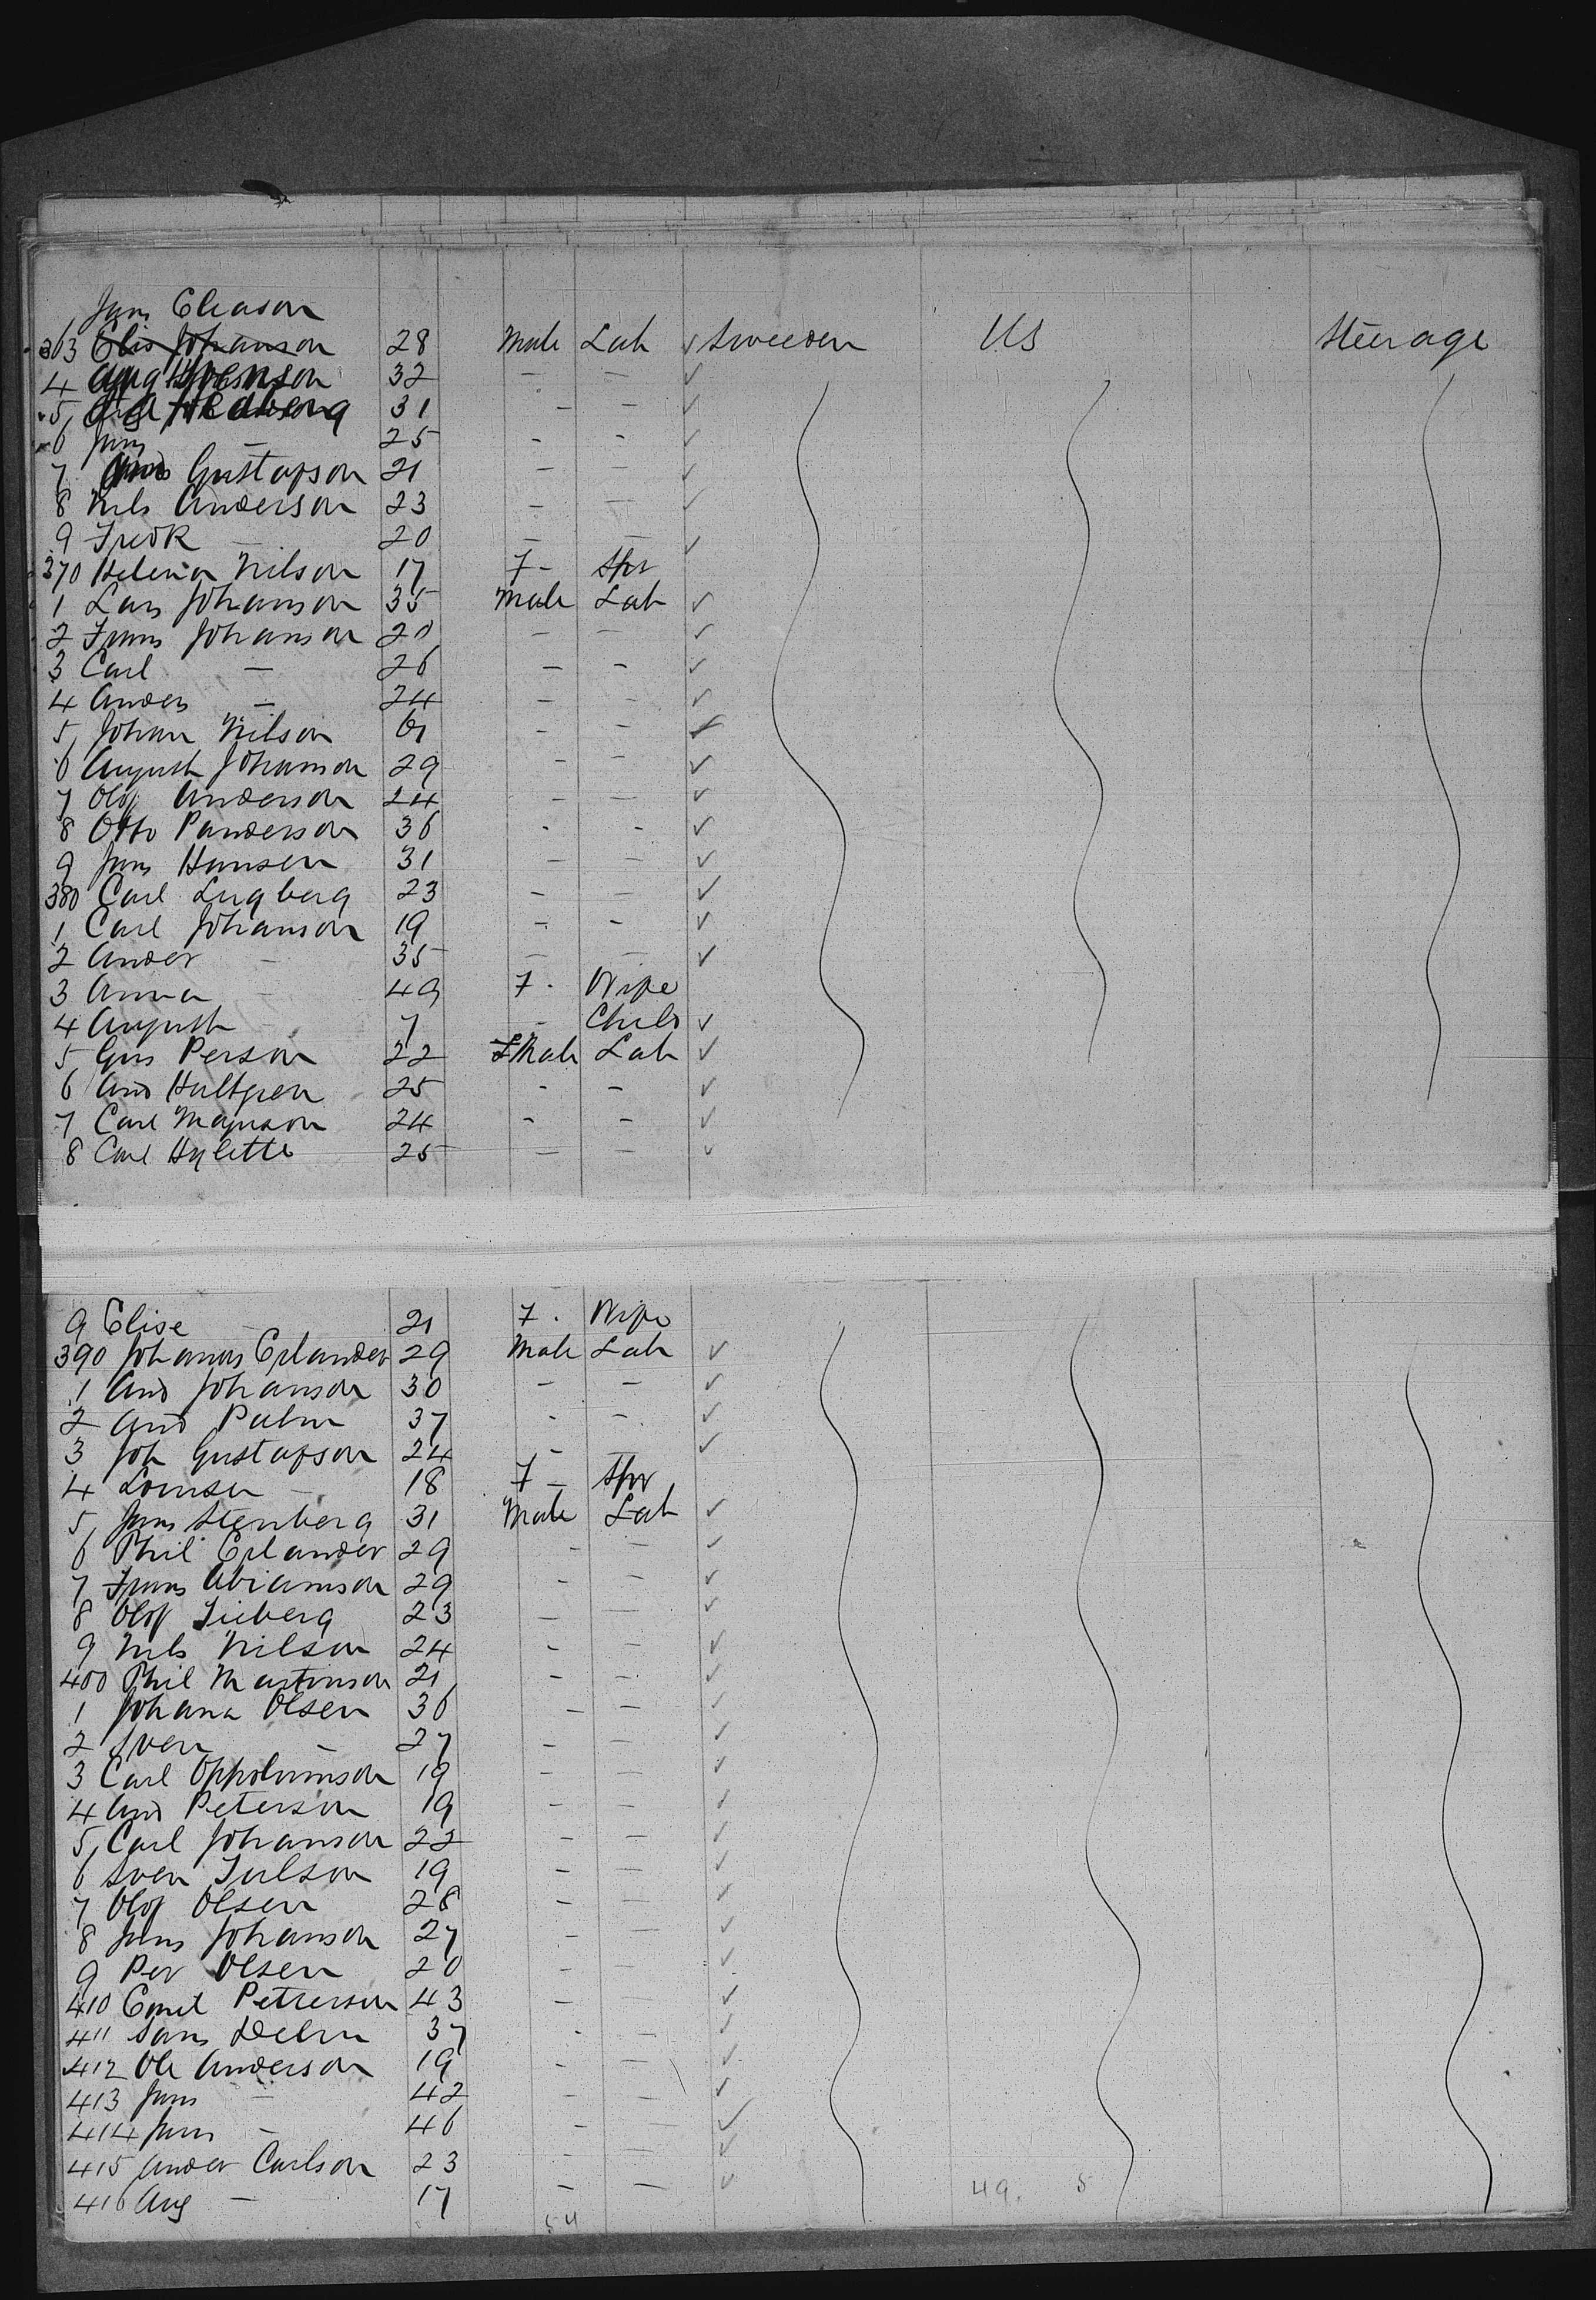 Jans Eliason
363 Elis Johanson 28 Male Lab ✓ Sweeden US Steerage
4 32 - - ✓
5 31 - - ✓
6 Jans - 25 - - ✓
7 And Gustafson 21 - - ✓
8 Nels Anderson 23 - - ✓
9 Fredk - 20 - - ✓
370 Helena Nilson 17 F - Spr
1 Lars Johanson 35 Male Lab ✓
2 Frans Johanson 20 - - ✓
3 Carl - 26 - - ✓
4 Anders - 24 - - ✓
5 Johan Nilson - - ✓
6 August Johanson 29 - - ✓
7 Olof Anderson 24 - - ✓
8 Otto Panderson 36 - - ✓
9 Jans Hansen 31 - - ✓
380 Carl Lugberg 23 - - ✓
1 Carl Johanson 19 - - ✓
2 Ander - 35 - - ✓
3 Anna - 49 F - Wife
4 August - 7 - Child ✓
5 Gus Person 22 Male Lab ✓
6 And Hultgren 25 - - ✓
7 Carl Magnson 24 - - ✓
8 Carl Hylette 25 - - ✓
9 Elise - 21 F - Wife
390 Johanas Erlander 29 Male Lab ✓
1 And Johanson 30 - - ✓
2 And Palm 37 - - ✓
3 Joh Gustafson 24 - - ✓
4 Louisa - 18 F - Spr
5 Jans Stenberg 31 Male Lab ✓
6 Phil Erlander 29 - - ✓
7 Frans Abramson 29 - - ✓
8 Olof Lieberg 23 - - ✓
9 Nels Nilson 24 - - ✓
400 Phil Martinson 21 - - ✓
1 Johana Olsen 36 - - ✓
2 Sven - 27 - - ✓
3 Carl 19 - - ✓
4 And Peterson 19 - - ✓
5 Carl Johanson 22 - - ✓
6 Sven 19 - - ✓
7 Olof Olsen 28 - - ✓
8 Jans Johanson 27 - - ✓
9 Per Olsen 20 - - ✓
410 Emil Petterson 43 - - ✓
411 37 - - ✓
412 Ole Anderson 19 - - ✓
413 Jans - 42 - - ✓
414 Jans - 46 - - ✓
415 Ander Carlson 23 - - ✓
416 Aug - 17 - - ✓ 49. 5
54